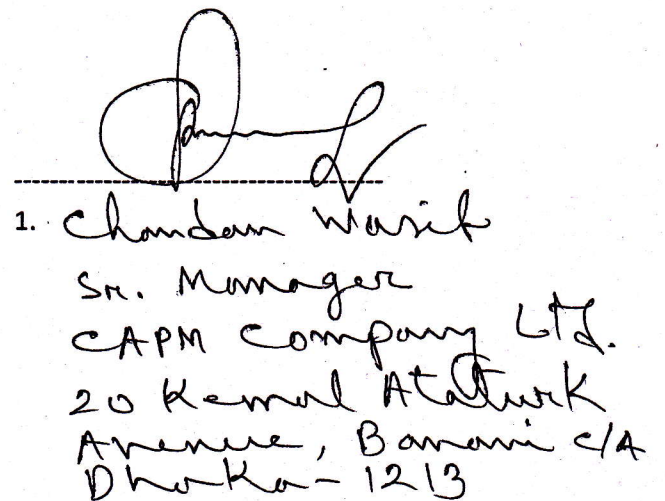 1. Chandan Wasif
Sr. Manager
CAPM Company Ltd.
20 Kemal Ataturk
Avenue, Banani C/A
Dhaka - 1213